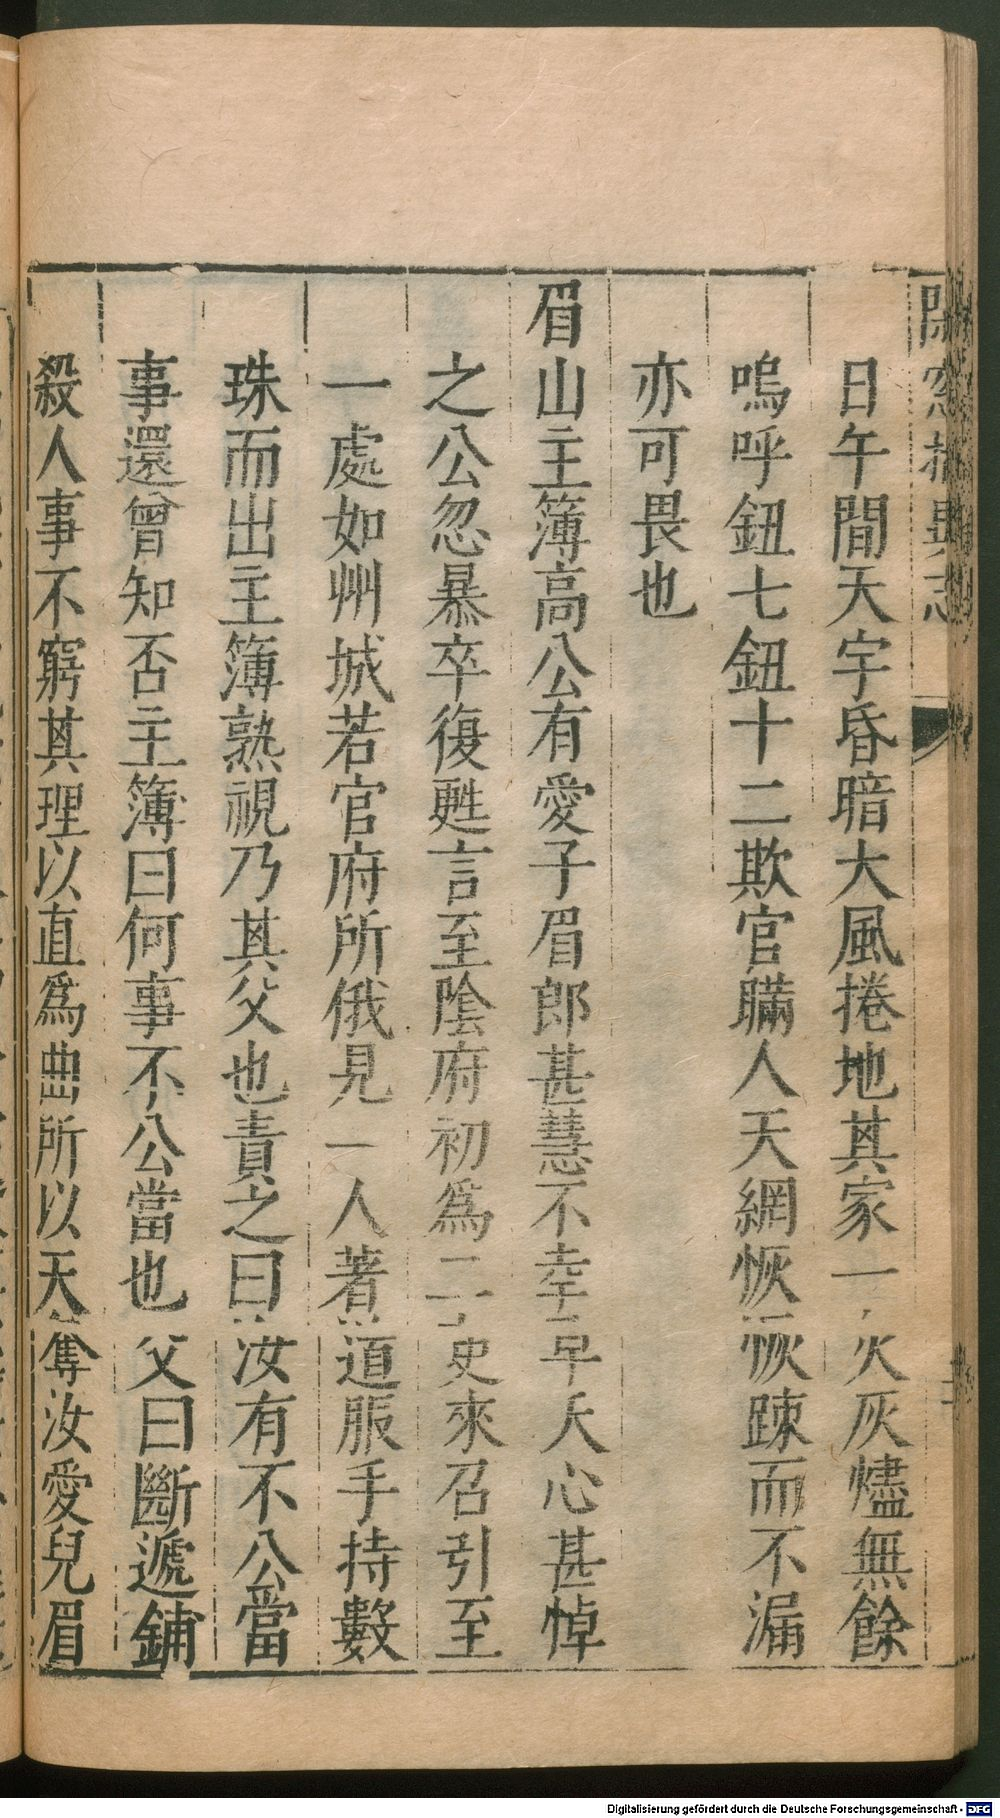 閑窓括異志
日午間天宇昏暗大風捲地其家一火灰燼無餘
嗚呼鈕七鈕十二欺官瞞人天網恢恢踈而不漏
亦可畏也
眉山主簿高公有愛子眉郎甚慧不幸早夭心甚悼
之公忽暴卒復甦言至陰府初爲二吏來召引至
一處如州城若官府所俄見一人著道服手持數
珠而出主簿熟視乃其父也責之曰汝有不公當
事還曾知否主簿曰何事不公當也父曰斷遞鋪
殺人事不窮其理以直爲曲所以天奪汝愛兒眉
Digitalisierung gefördert durch die Deutsche Forschungsgemeinschaft - DFG